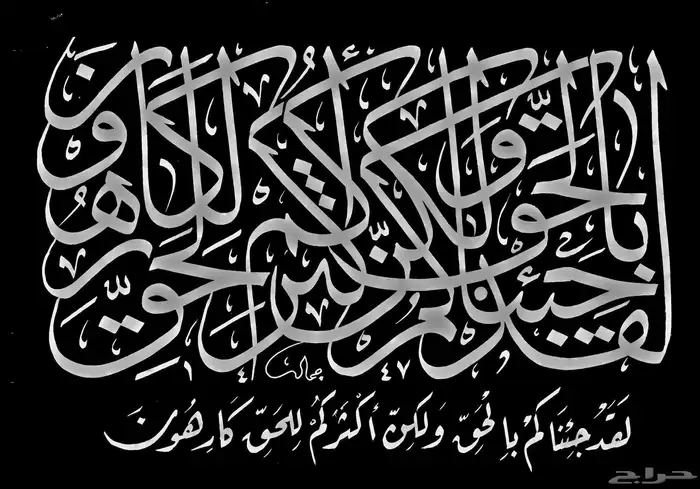 لقد جئناكم بالحق ولكن أكثركم للحق كارهون
١٤١ جمال ٤٧
لَقَدْ جِئْنَاكُمْ بِالْحَقِّ وَلَكِنَّ أَكْثَرَكُمْ لِلْحَقِّ كَارِهُونَ
حراج